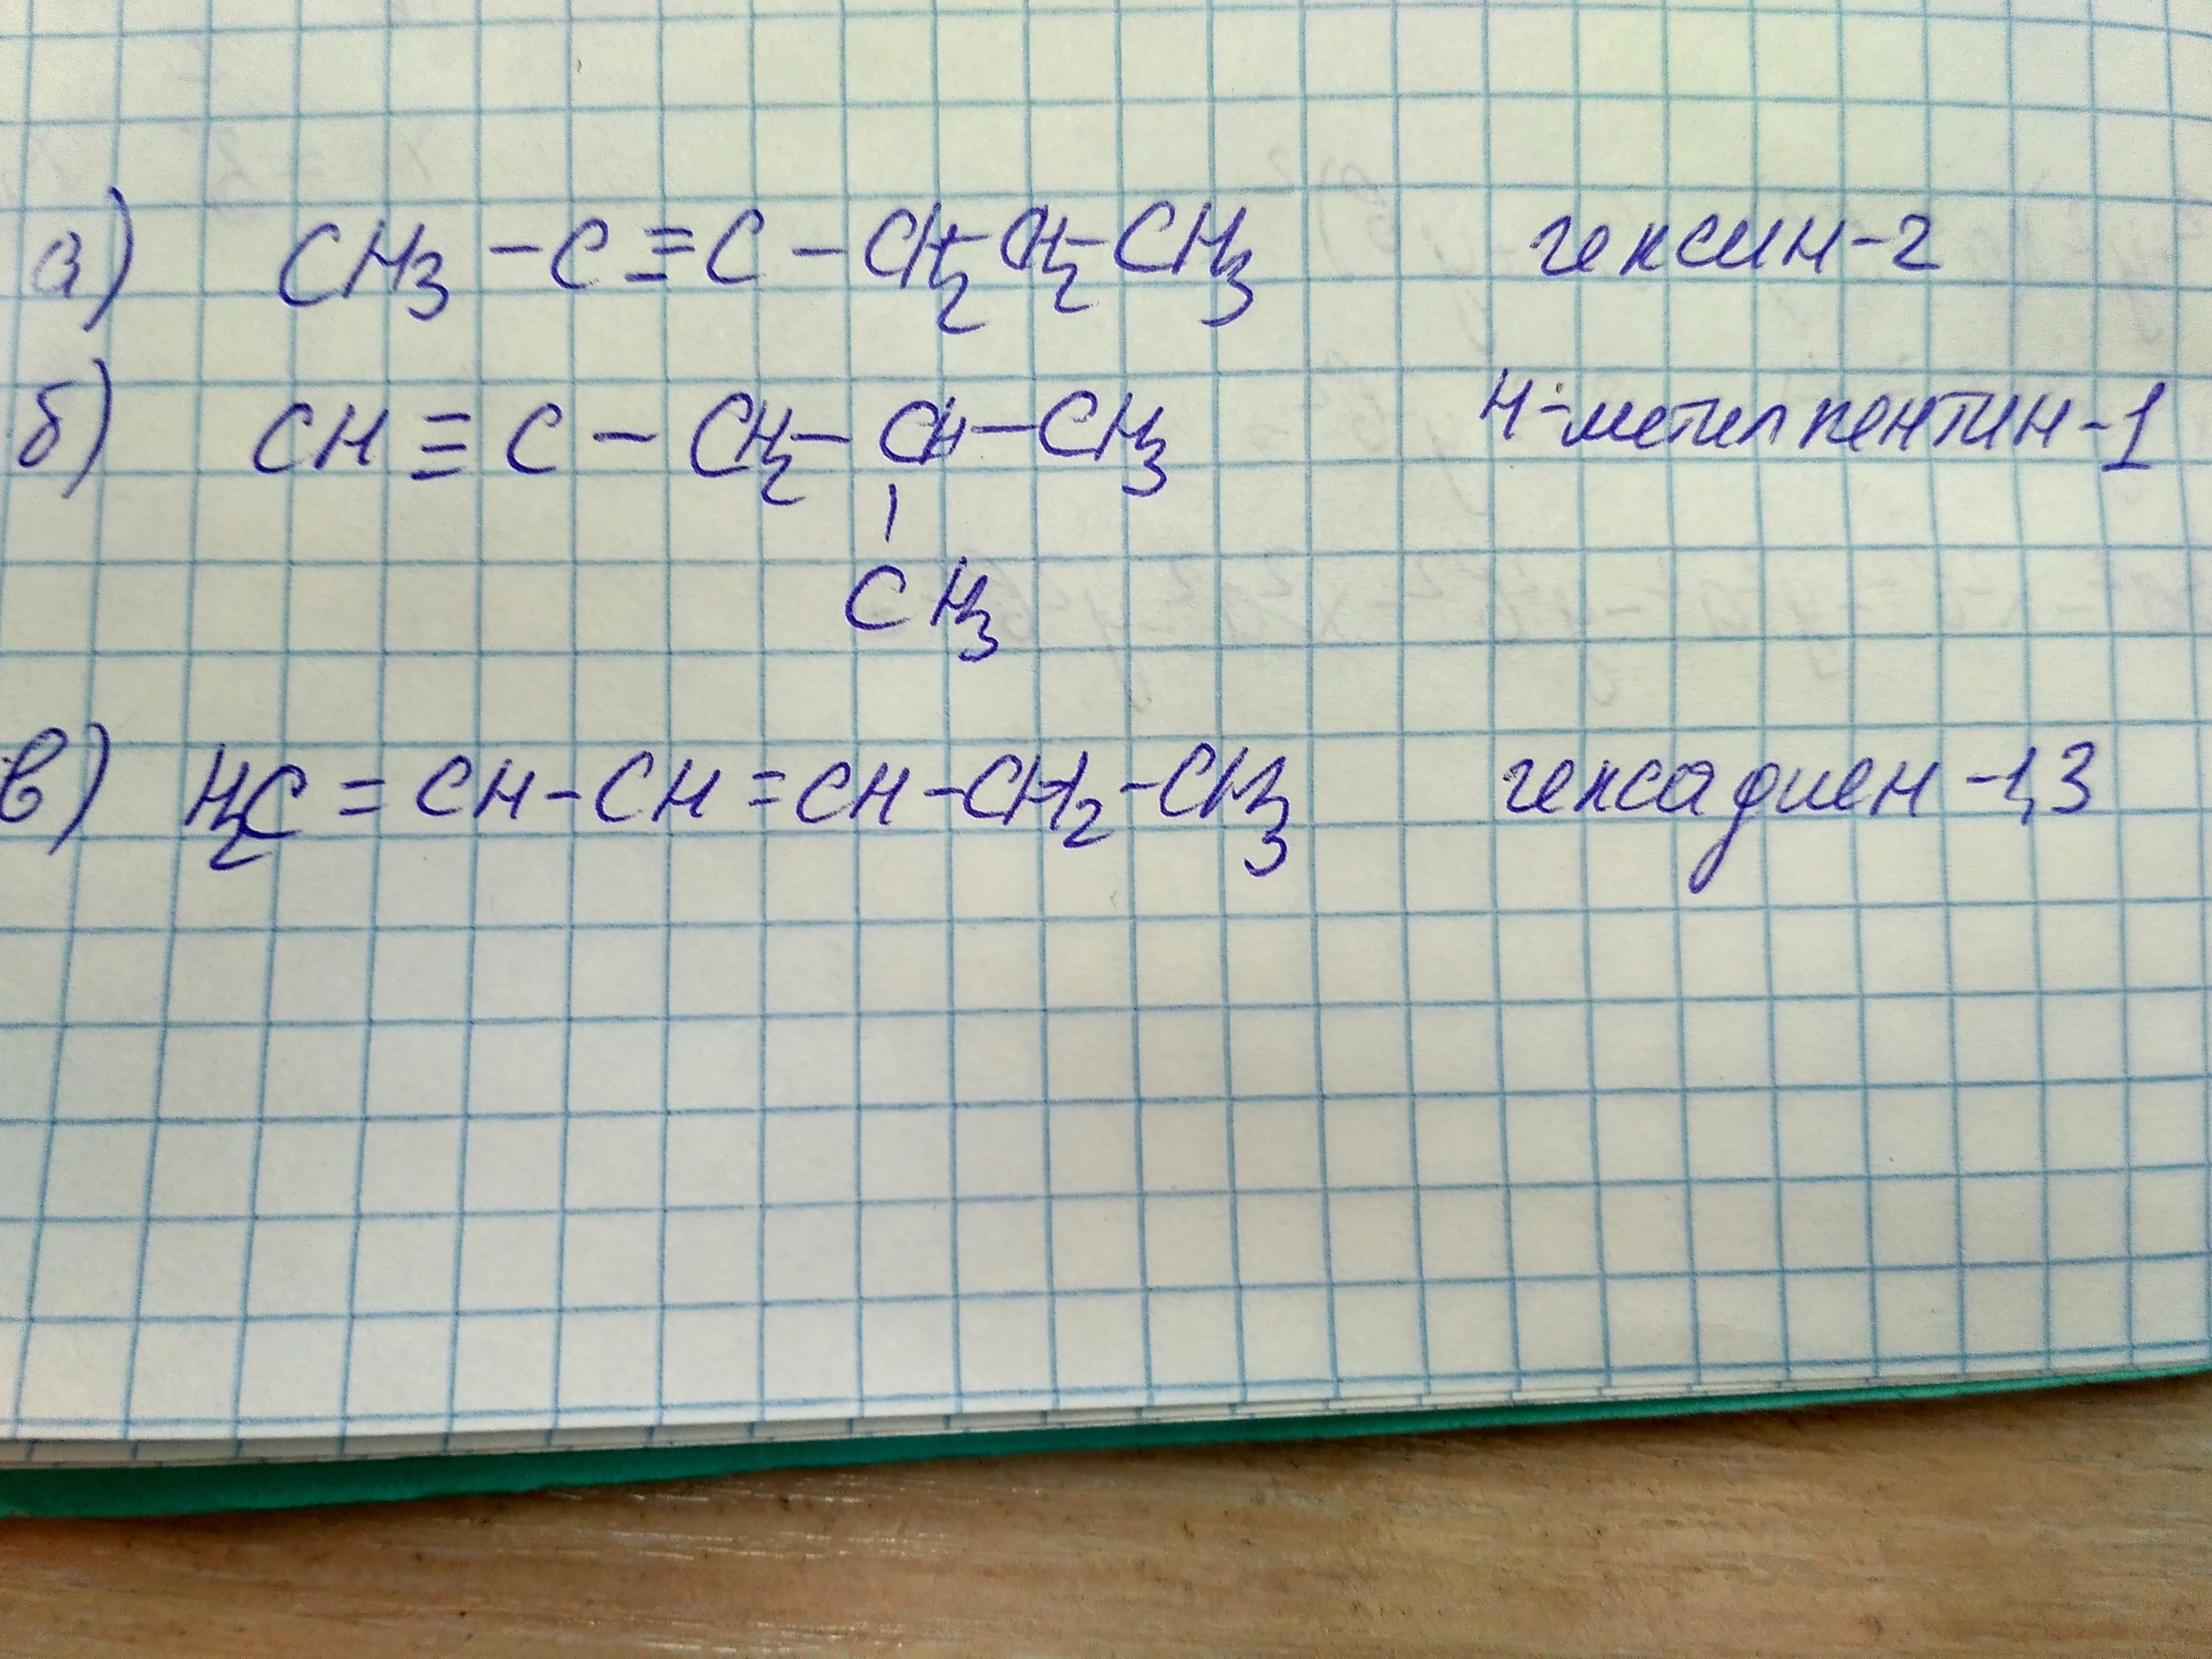 а) CH3 - C ≡ C - CH2 - CH2 - CH3 гексин-2
б) CH ≡ C - CH2 - CH - CH3 4-метилпентин-1
|
CH3
в) H2C = CH - CH = CH - CH2 - CH3 гексадиен-1,3